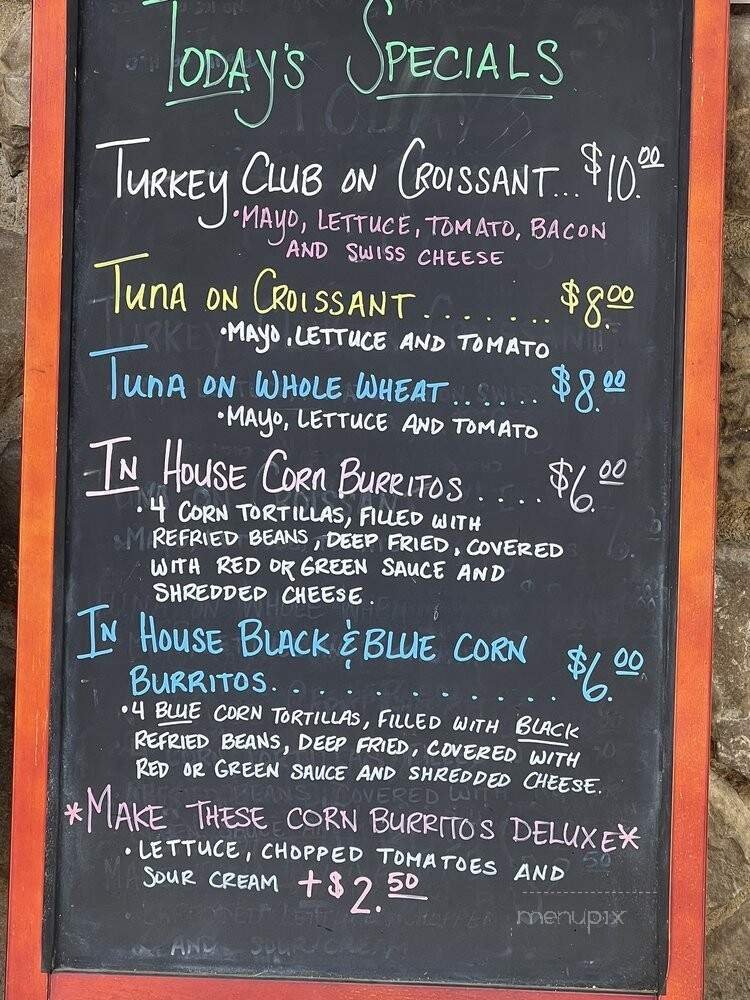 TODAY'S SPECIALS
TURKEY CLUB ON CROISSANT... $10.00
•MAYO, LETTUCE, TOMATO, BACON
AND SWISS CHEESE
TUNA ON CROISSANT....... $8.00
•MAYO, LETTUCE AND TOMATO
TUNA ON WHOLE WHEAT...... $8.00
•MAYO, LETTUCE AND TOMATO
IN HOUSE CORN BURRITOS .... $6.00
•4 CORN TORTILLAS, FILLED WITH
REFRIED BEANS, DEEP FRIED, COVERED
WITH RED OR GREEN SAUCE AND
SHREDDED CHEESE.
IN HOUSE BLACK & BLUE CORN
BURRITOS............. $6.00
•4 BLUE CORN TORTILLAS, FILLED WITH BLACK
REFRIED BEANS, DEEP FRIED, COVERED WITH
RED OR GREEN SAUCE AND SHREDDED CHEESE.
*MAKE THESE CORN BURRITOS DELUXE*
•LETTUCE, CHOPPED TOMATOES AND
SOUR CREAM +$2.50
menupix